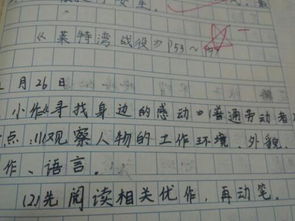 《莱特湾战役》P53~
月26日
小作《寻找身边的感动》普通劳动者
点:(1)观察人物的工作环境、外貌、
作、语言。
(2)先阅读相关优作,再动笔。